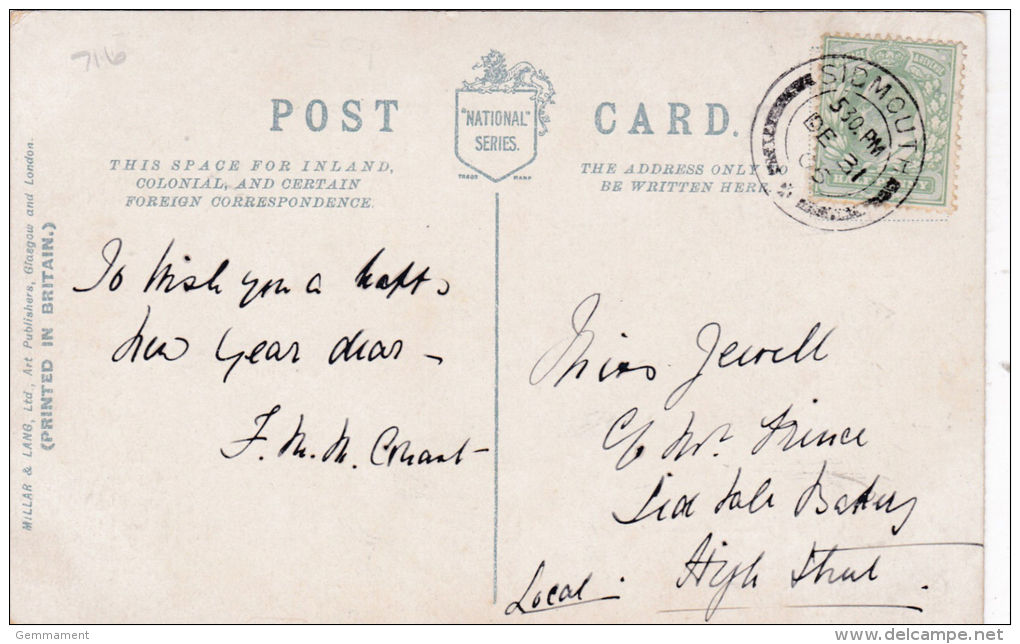 716
POST CARD.
"NATIONAL"
SERIES.
TRADE MARK
THIS SPACE FOR INLAND,
COLONIAL, AND CERTAIN
FOREIGN CORRESPONDENCE.
THE ADDRESS ONLY TO
BE WRITTEN HERE
SIDMOUTH
5 30. PM
DE 31
MILLAR & LANG, Ltd., Art Publishers, Glasgow and London.
(PRINTED IN BRITAIN.)
To Wish you a happy
New Year dear -
F. M. M.
Miss Jewell
c/o Mr. Prince
Sid Vale Bakery
High Street.
Local -
Gemmament
delcampe.net